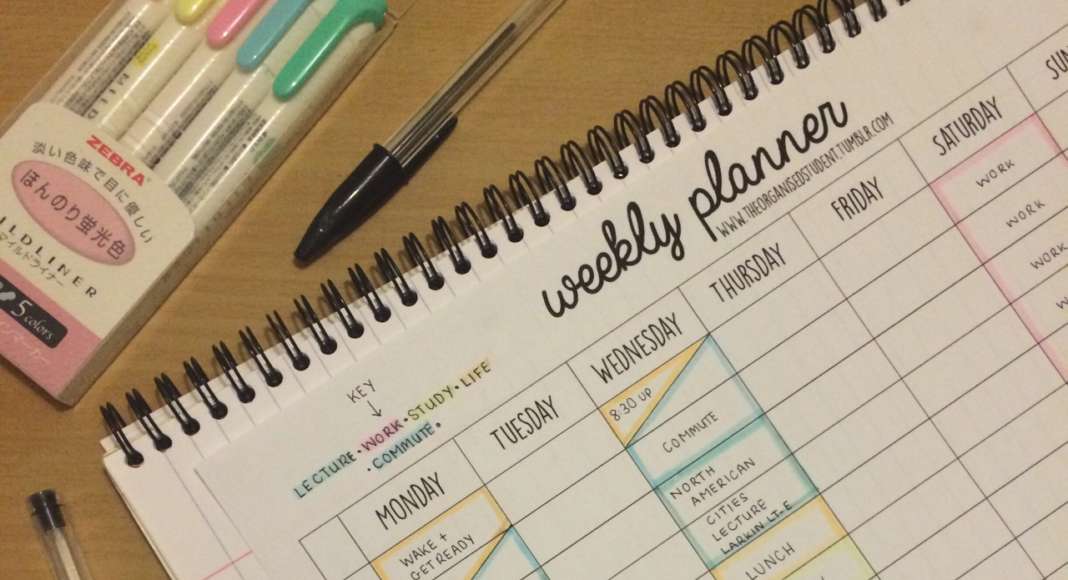 ZEBRA
淡い色味で目に優しい
ほんのり蛍光色
ILDLINER
マイルドライナー
5 colors
MILD
weekly planner
WWW.THEORGANISEDSTUDENT.TUMBLR.COM
KEY
LECTURE • WORK • STUDY • LIFE
• COMMUTE •
MONDAY
WAKE +
GET READY
TUESDAY
WEDNESDAY
8:30 UP
COMMUTE
NORTH
AMERICAN
CITIES
LECTURE
LARKIN LT.E
LUNCH
THURSDAY
FRIDAY
SATURDAY
WORK
WORK
WORK
SUN